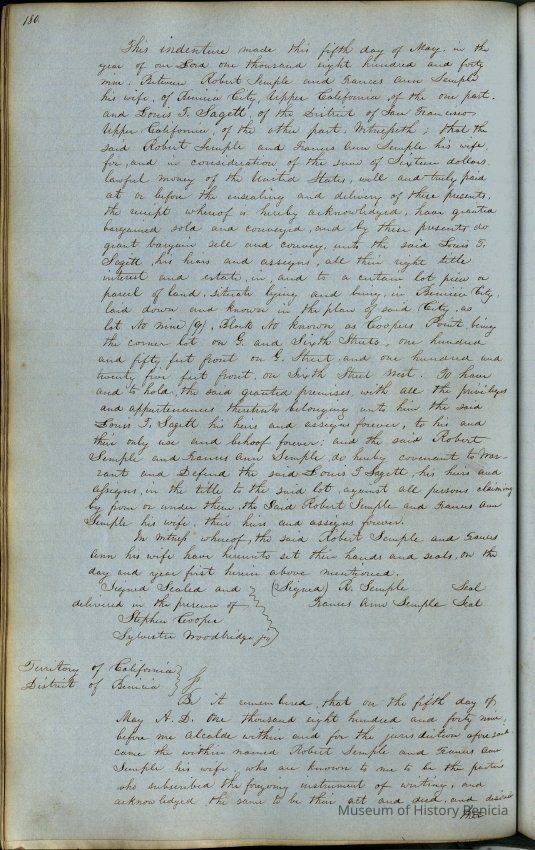 180.
This indenture made this fifth day of May, in the
year of our Lord one thousand eight hundred and forty
nine. Between Robert Semple and Frances Ann Semple
his wife, of Benicia City, Upper California, of the one part.
and Louis T. Sagett, of the District of San Francisco
Upper California, of the other part, Witnesseth; that the
said Robert Semple and Frances Ann Semple his wife,
for, and in consideration of the sum of Sixteen dollars
lawful money of the United States, well and truly paid
at or before the ensealing and delivery of these presents,
the receipt whereof is hereby acknowledged, have granted
bargained sold and conveyed, and by these presents do
grant bargain sell and convey, unto the said Louis T.
Sagett, his heirs and assigns, all their right title
interest and estate, in and to a certain lot piece or
parcel of land, situate lying and being, in Benicia City,
laid down and known in the plan of said City, as
lot No nine (9), Block No known as Coopers Point, being
the corner lot on G. and Sixth Streets, one hundred
and fifty feet front on G. Street, and one hundred and
twenty five feet front, on Sixth Street West. To have
and to hold, the said granted premises, with all the privileges
and appurtenances thereunto belonging unto him the said
Louis T. Sagett his heirs and assigns forever, to his and
their only use and behoof forever; and the said Robert
Semple and Frances Ann Semple do hereby covenant to War-
rant and Defend the said Louis T Sagett, his heirs and
assigns, in the title to the said lot, against all persons claiming
by from or under them, the Said Robert Semple and Frances Ann
Semple his wife, their heirs and assigns forever.
In witness whereof, the said Robert Semple and Frances
Ann his wife have hereunto set their hands and seals, on the
day and year first herein above mentioned.
Signed Sealed and (Signed) R. Semple Seal
delivered in the presence of Frances Ann Semple Seal
Stephen Cooper
Sylvester Woodbridge, Jr)
Territory of California
District of Benicia
Be it remembered, that on the fifth day of
May A. D. One thousand eight hundred and forty nine,
before me Alcalde within and for the jurisdiction aforesaid
came the within named Robert Semple and Frances Ann
Semple his wife, who are known to me to be the parties
who subscribed the foregoing instrument of writing, and
acknowledged the same to be their act and deed, and
Museum of History Benicia